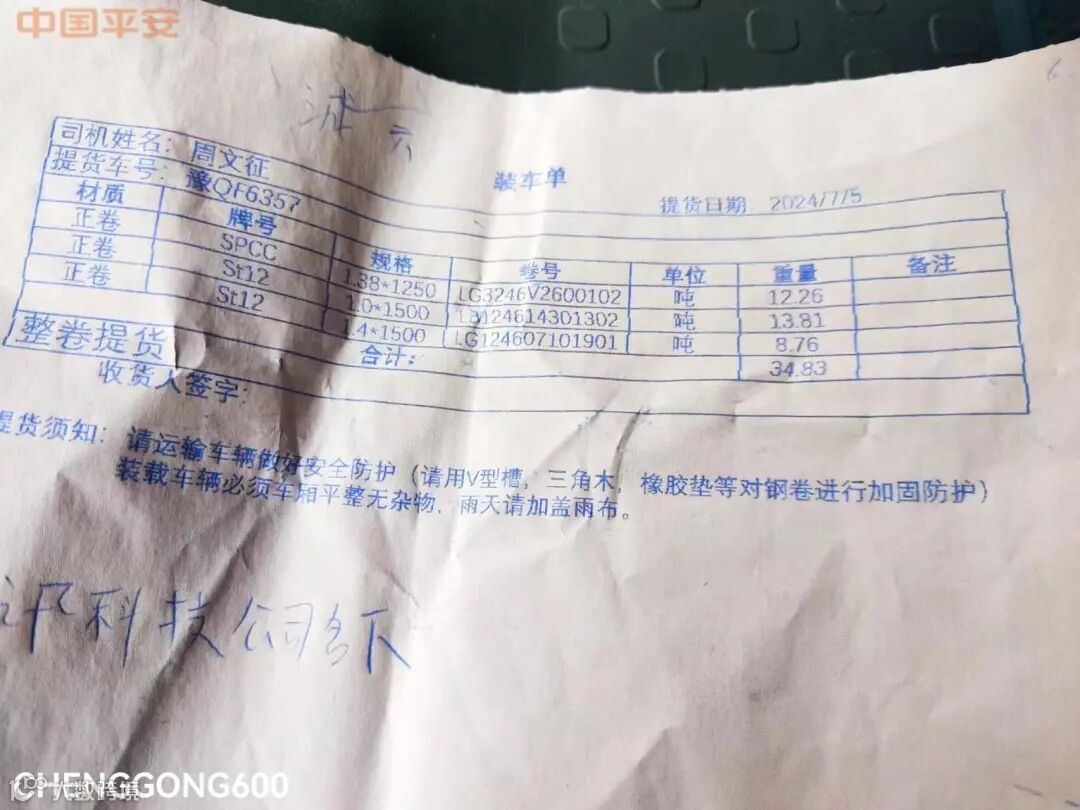 中国平安
装车单
司机姓名：周文征
提货车号：豫QF6357 提货日期 2024/7/5
材质 牌号 规格 卷号 单位 重量 备注
正卷 SPCC 1.38*1250 LG3246V2600102 吨 12.26
正卷 St12 1.0*1500 124614301302 吨 13.81
正卷 St12 1.4*1500 LG124607101901 吨 8.76
合计： 34.83
整卷提货
收货人签字：
提货须知：请运输车辆做好安全防护（请用V型槽，三角木，橡胶垫等对钢卷进行加固防护）
装载车辆必须车厢平整无杂物，雨天请加盖雨布。
科技公司
CHENGGONG600
大数跨境